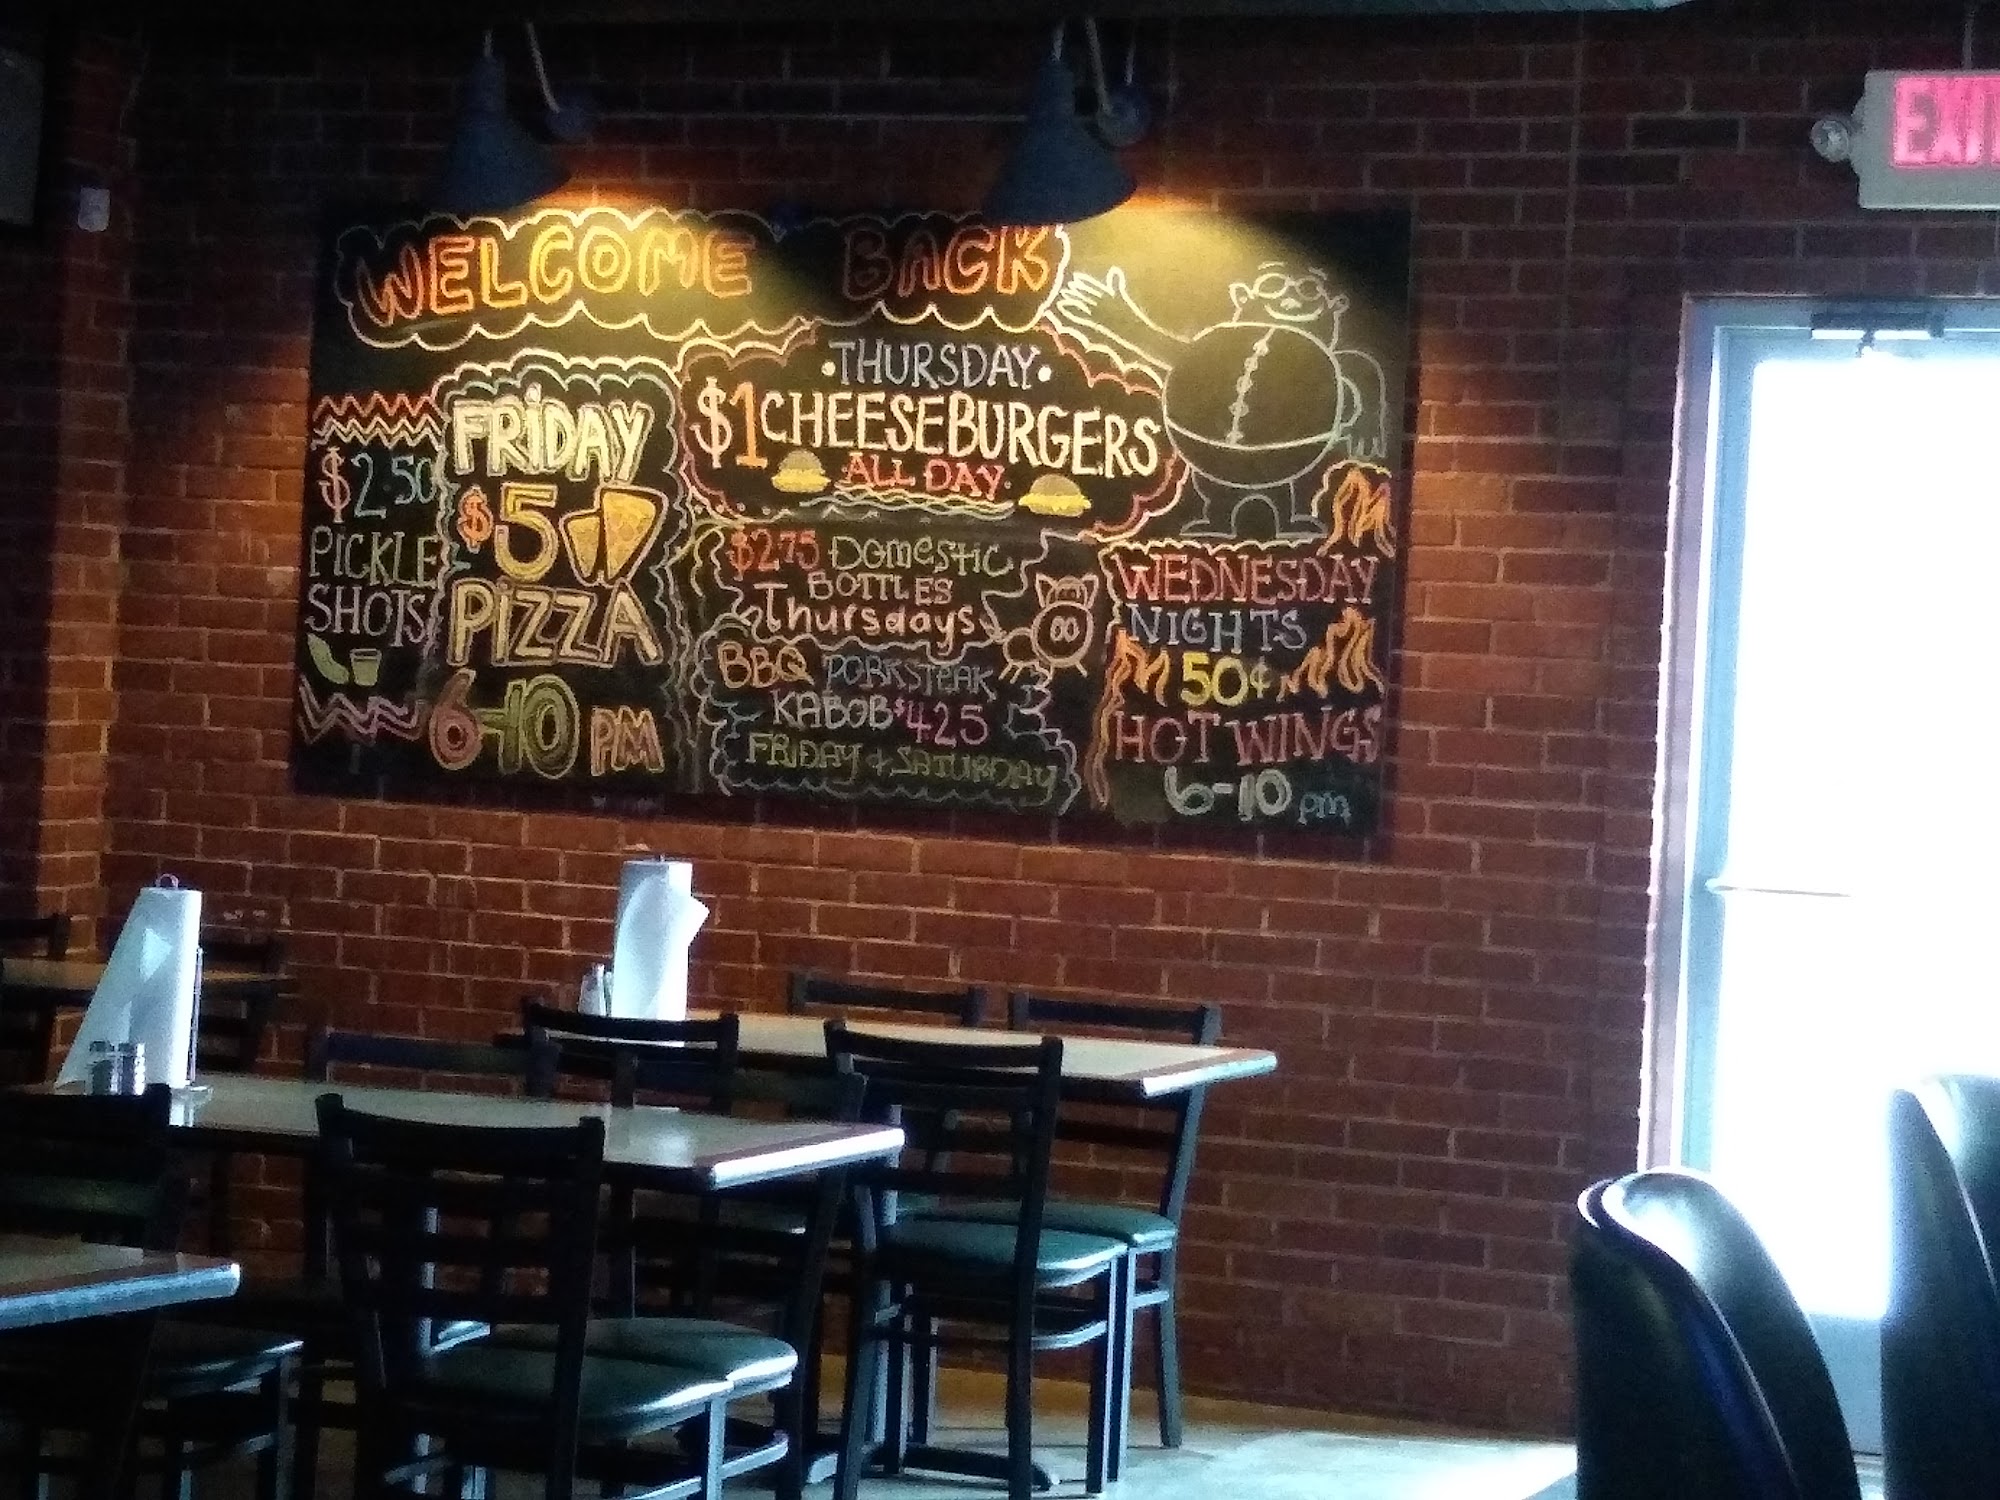 WELCOME BACK
EXIT
$2.50
PICKLE
SHOTS
FRIDAY
$5
PIZZA
6-10 PM
·THURSDAY·
$1 CHEESEBURGERS
·ALL DAY·
$2.75 DOMESTIC
BOTTLES
Thursdays
BBQ PORKSTEAK
KABOB $4.25
FRIDAY & SATURDAY
WEDNESDAY
NIGHTS
50¢
HOT WINGS
6-10 pm